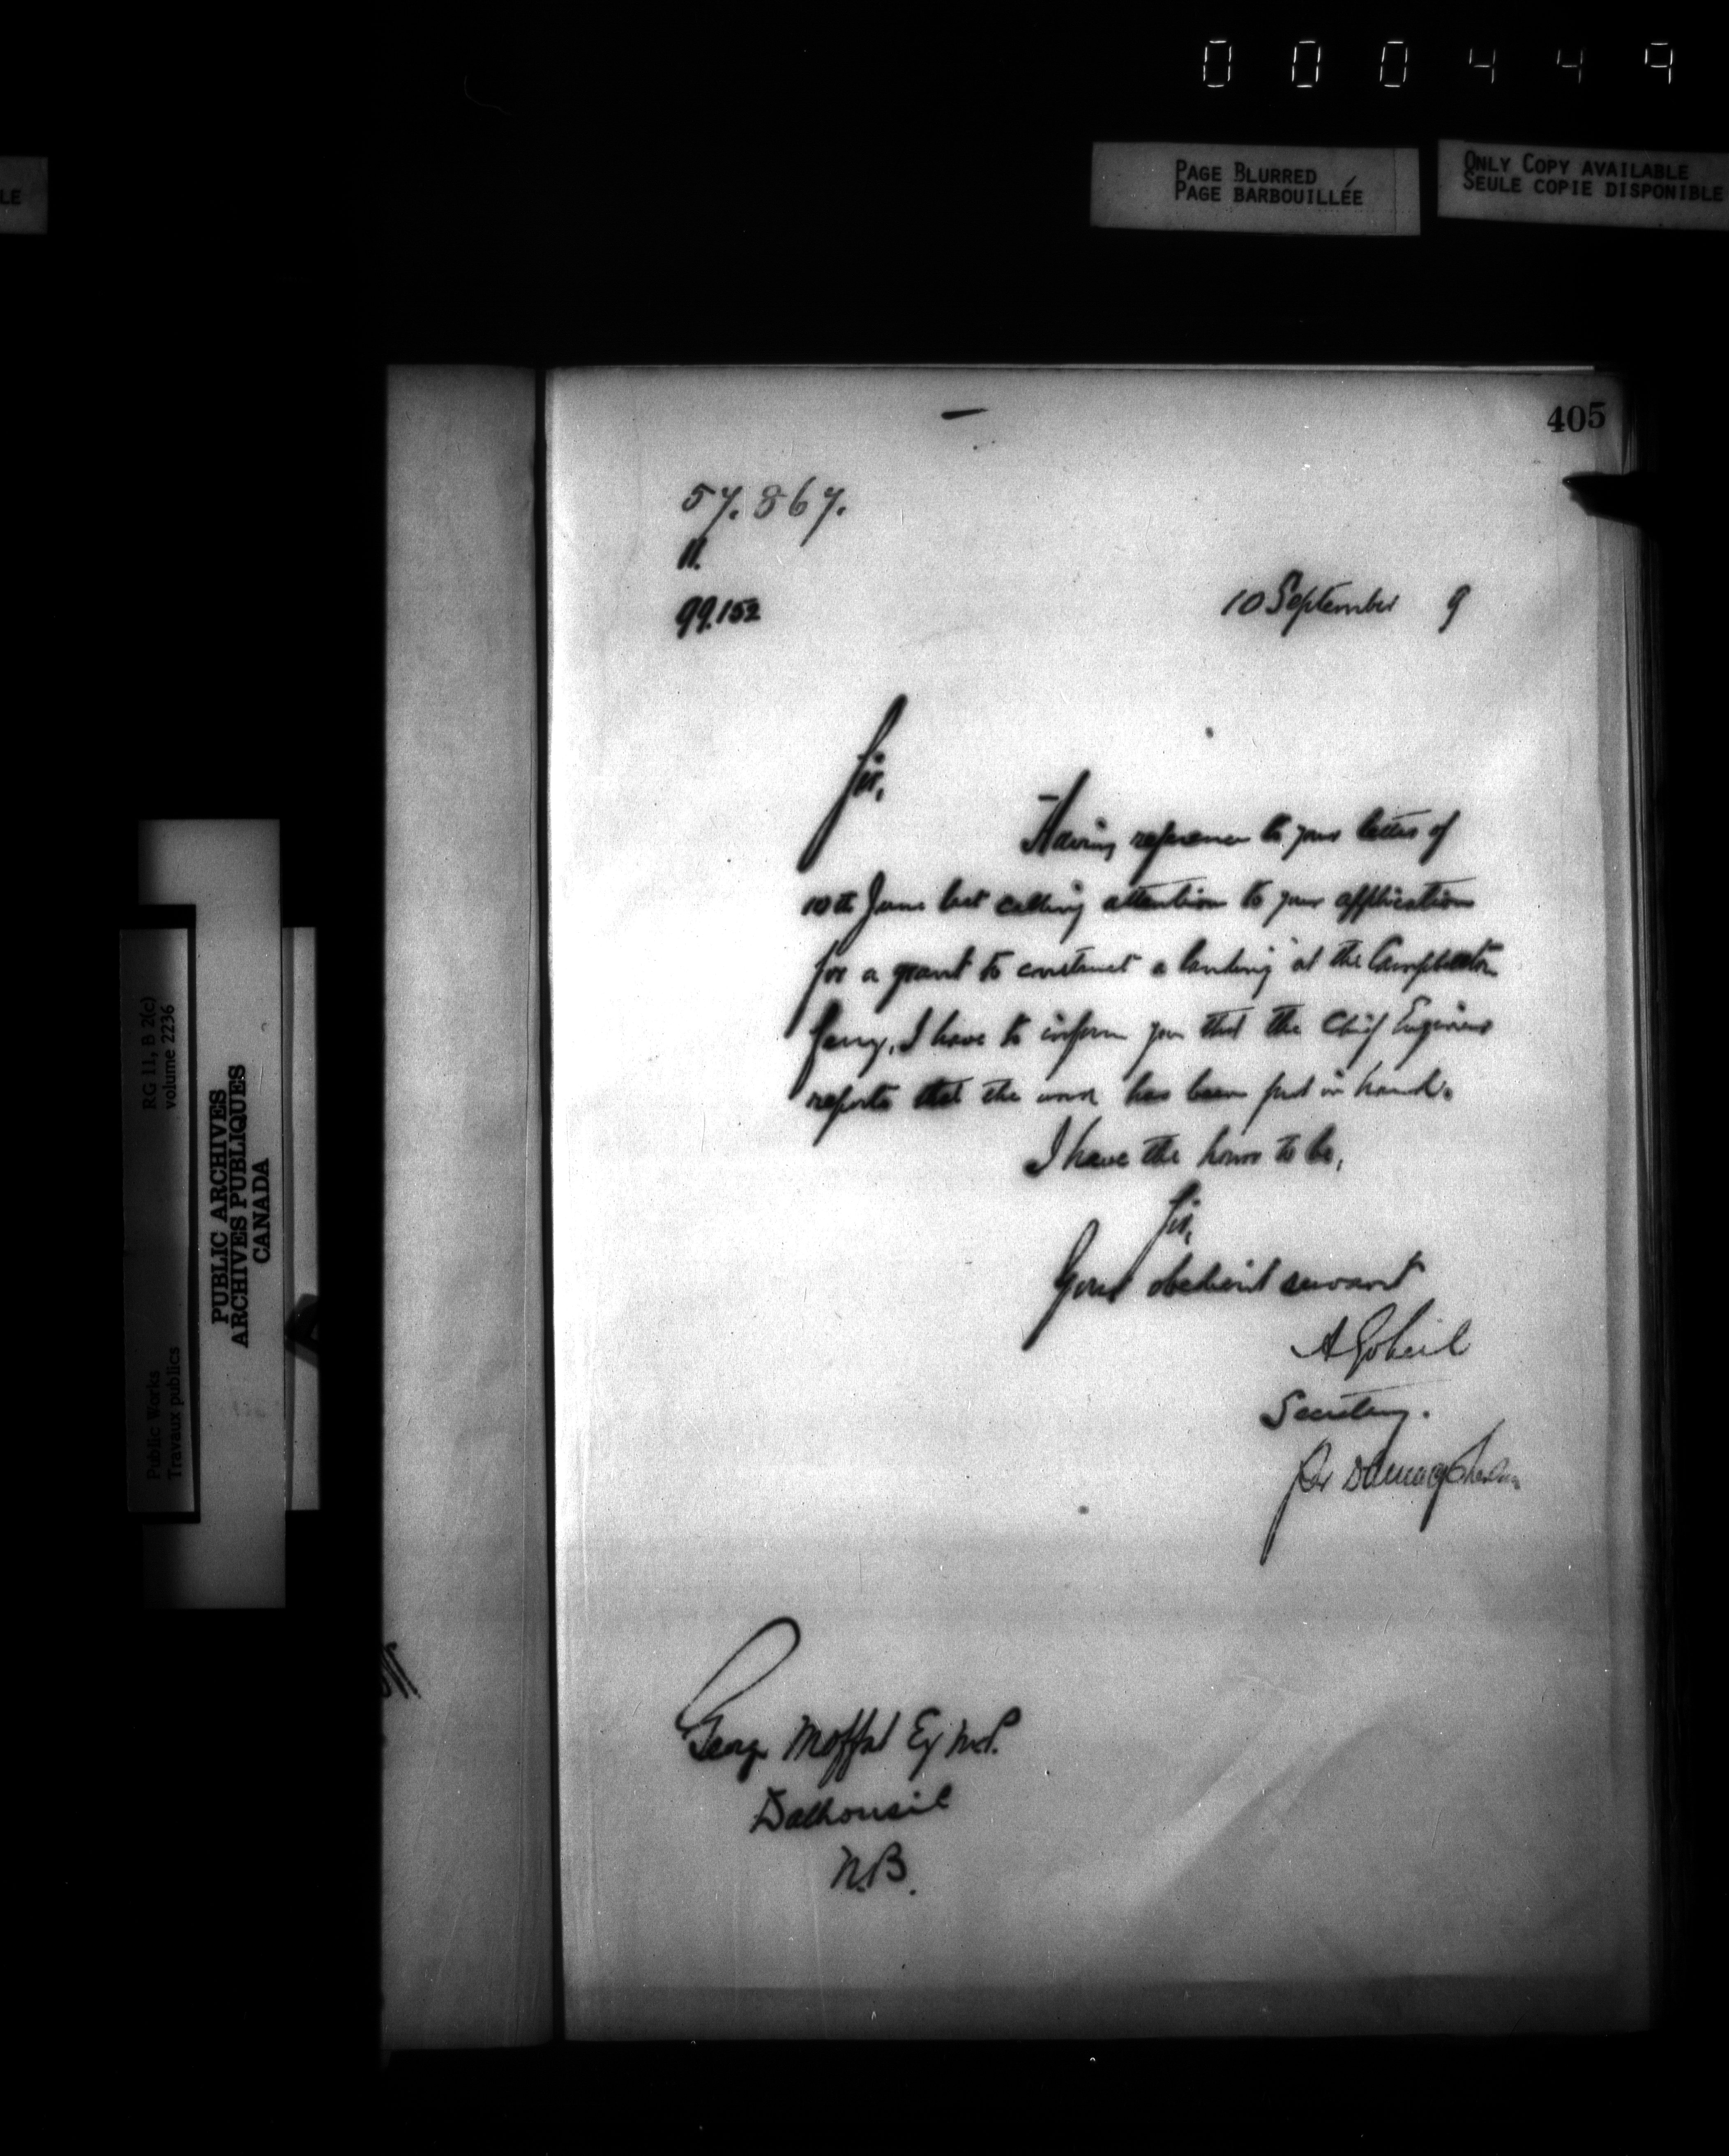 000449
PAGE BLURRED
PAGE BARBOUILLÉE
ONLY COPY AVAILABLE
SEULE COPIE DISPONIBLE
LE
405
57.867.
11.
99.152
10 September 9
Sir,
Having reference to your letter of
10th June last calling attention to your application
for a grant to construct a landing at the Campbellton
ferry, I have to inform you that the Chief Engineer
reports that the work has been put in hand.
I have the honor to be,
Sir,
Your obedient servant
A Gobeil
Secretary.
per
George Moffat Esq M.P.
Dalhousie
N.B.
RG 11, B 2(c)
volume 2236
Public Works
Travaux publics
PUBLIC ARCHIVES
ARCHIVES PUBLIQUES
CANADA